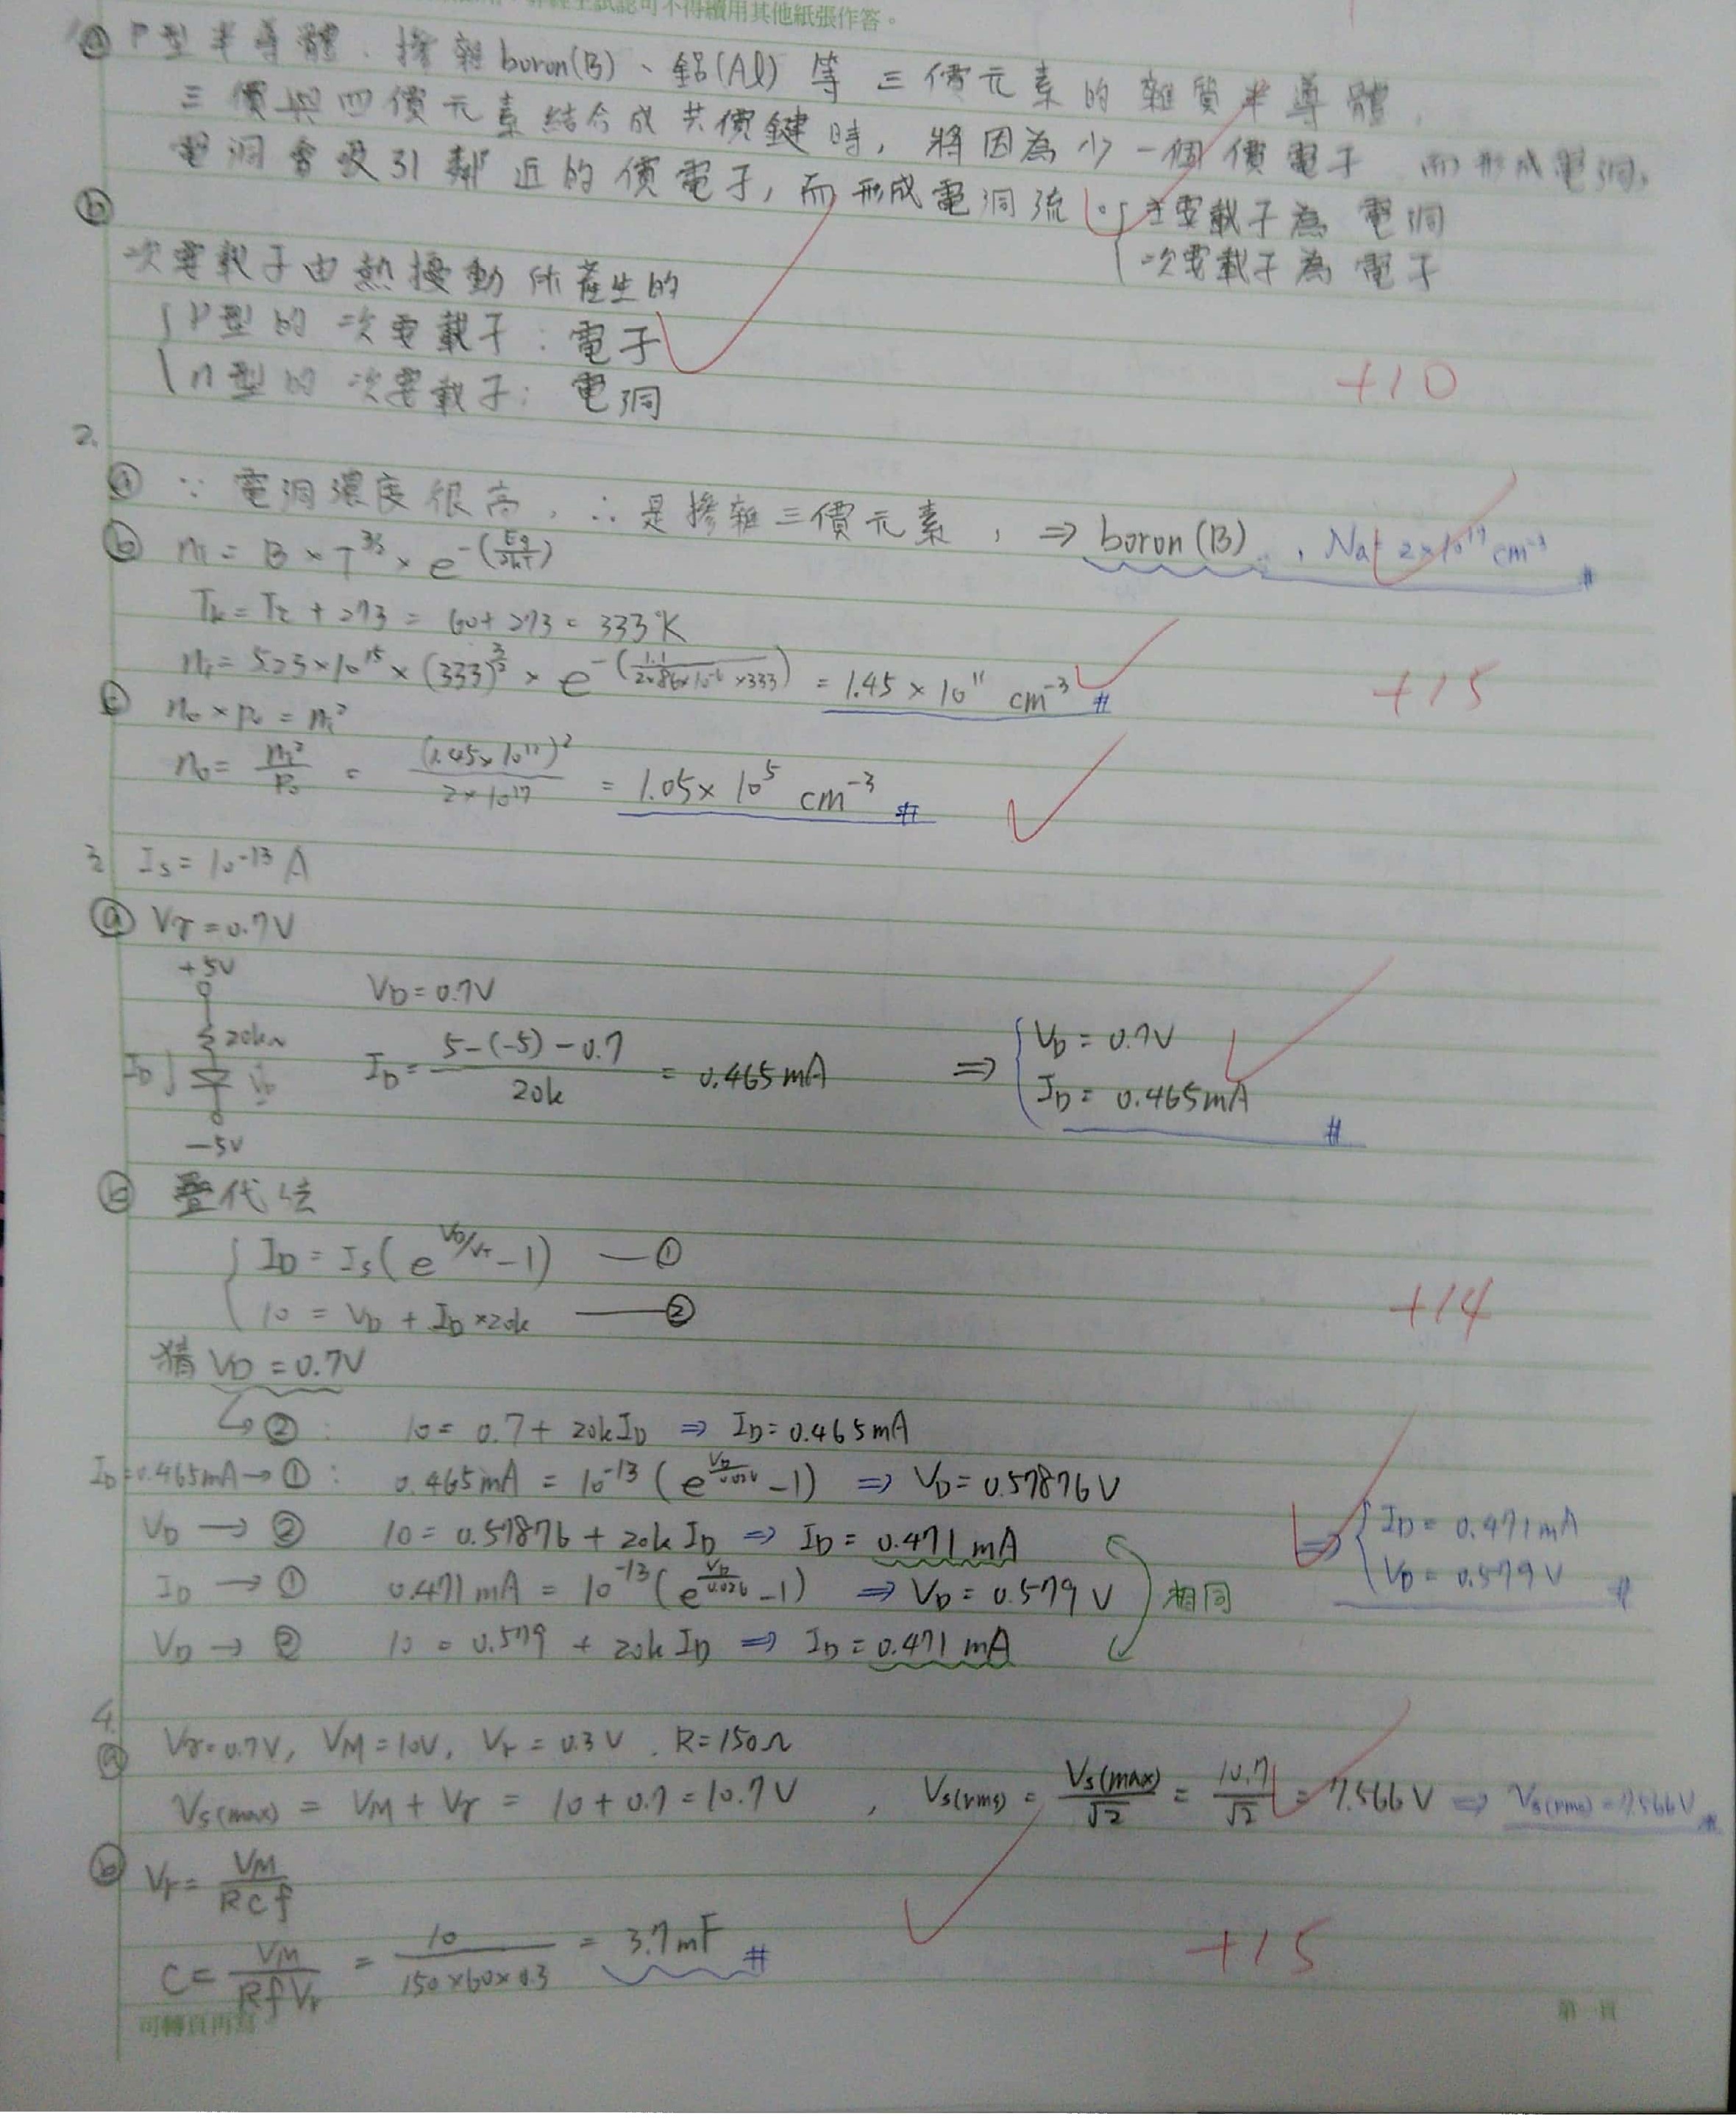 可不得續用其他紙張作答。
ⓐ P型半導體．摻雜boron(B)、鋁(Al)等三價元素的雜質半導體，
三價與四價元素結合成共價鍵時，將因為少一個價電子而形成電洞，
電洞會吸引鄰近的價電子，而形成電洞流。{主要載子為電洞
次要載子為電子
ⓑ
次要載子由熱擾動所產生的
{P型的次要載子：電子
n型的次要載子：電洞
+10
2.
ⓐ ∵電洞濃度很高，∴是摻雜三價元素，⇒ boron(B)，Na= 2×10¹⁷ cm⁻³ #
ⓑ ni = B × T^3/2 × e^-(Eg/2kT)
Tk = Tc + 273 = 60 + 273 = 333°K
ni = 5.23×10¹⁵ × (333)^3/2 × e^-(1.1/2×86×10⁻⁶×333) = 1.45 × 10¹¹ cm⁻³ #
+15
ⓒ n₀ × p₀ = ni²
n₀ = ni²/P₀ = (1.45×10¹¹)²/2×10¹⁷ = 1.05×10⁵ cm⁻³ #
3. Is = 10⁻¹³ A
ⓐ Vγ = 0.7V
+5V
VD = 0.7V
20kΩ
ID VD
ID = 5-(-5)-0.7/20k = 0.465mA ⇒ {VD = 0.7V
ID = 0.465mA #
-5V
ⓑ 疊代法
{ID = Is(e^VD/VT - 1) —①
10 = VD + ID×20k —②
+14
猜 VD = 0.7V
↳②： 10 = 0.7 + 20kID ⇒ ID = 0.465mA
ID=0.465mA→①： 0.465mA = 10⁻¹³(e^VD/0.026 - 1) ⇒ VD = 0.57876V
VD → ② 10 = 0.57876 + 20kID ⇒ ID = 0.471mA
⇒ {ID = 0.471mA
VD = 0.579V #
ID → ① 0.471mA = 10⁻¹³(e^VD/0.026 - 1) ⇒ VD = 0.579V
相同
VD → ② 10 = 0.579 + 20kID ⇒ ID = 0.471mA
4.
ⓐ Vγ=0.7V, VM=10V, Vr=0.3V, R=150Ω
Vs(max) = VM + Vγ = 10+0.7 = 10.7V , Vs(rms) = Vs(max)/√2 = 10.7/√2 = 7.566V ⇒ Vs(rms)=7.566V #
ⓑ Vr = VM/RCf
C = VM/RfVr = 10/150×60×0.3 = 3.7mF #
+15
可轉頁再寫
第一頁